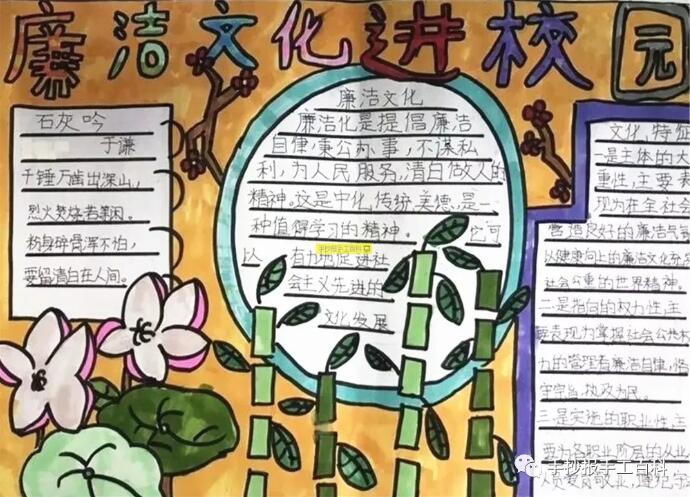 廉洁文化进校园
石灰吟
于谦
千锤万凿出深山,
烈火焚烧若等闲。
粉身碎骨浑不怕,
要留清白在人间。
廉洁文化
廉洁化是提倡廉洁
自律,秉公办事,不谋私
利,为人民服务,清白做人的
精神。这是中化传统美德,是一
种值得学习的精神。它可
以有力地促进社
会主义先进的
文化发展
文化,特征
一是主体的大
重性,主要表
现为在全社会
营造良好的廉洁
以健康向上的廉洁文化充
社会公重的世界精神。
二是指向的权力性,主
要表现为掌握社会公共
力的管理者廉洁自律,恪
守宗旨,执政为民。
三是实施的职业性,主
要为各职业阶层的从业
人员爱岗敬业,遵纪守
手抄报手工百科
手抄报手工百科